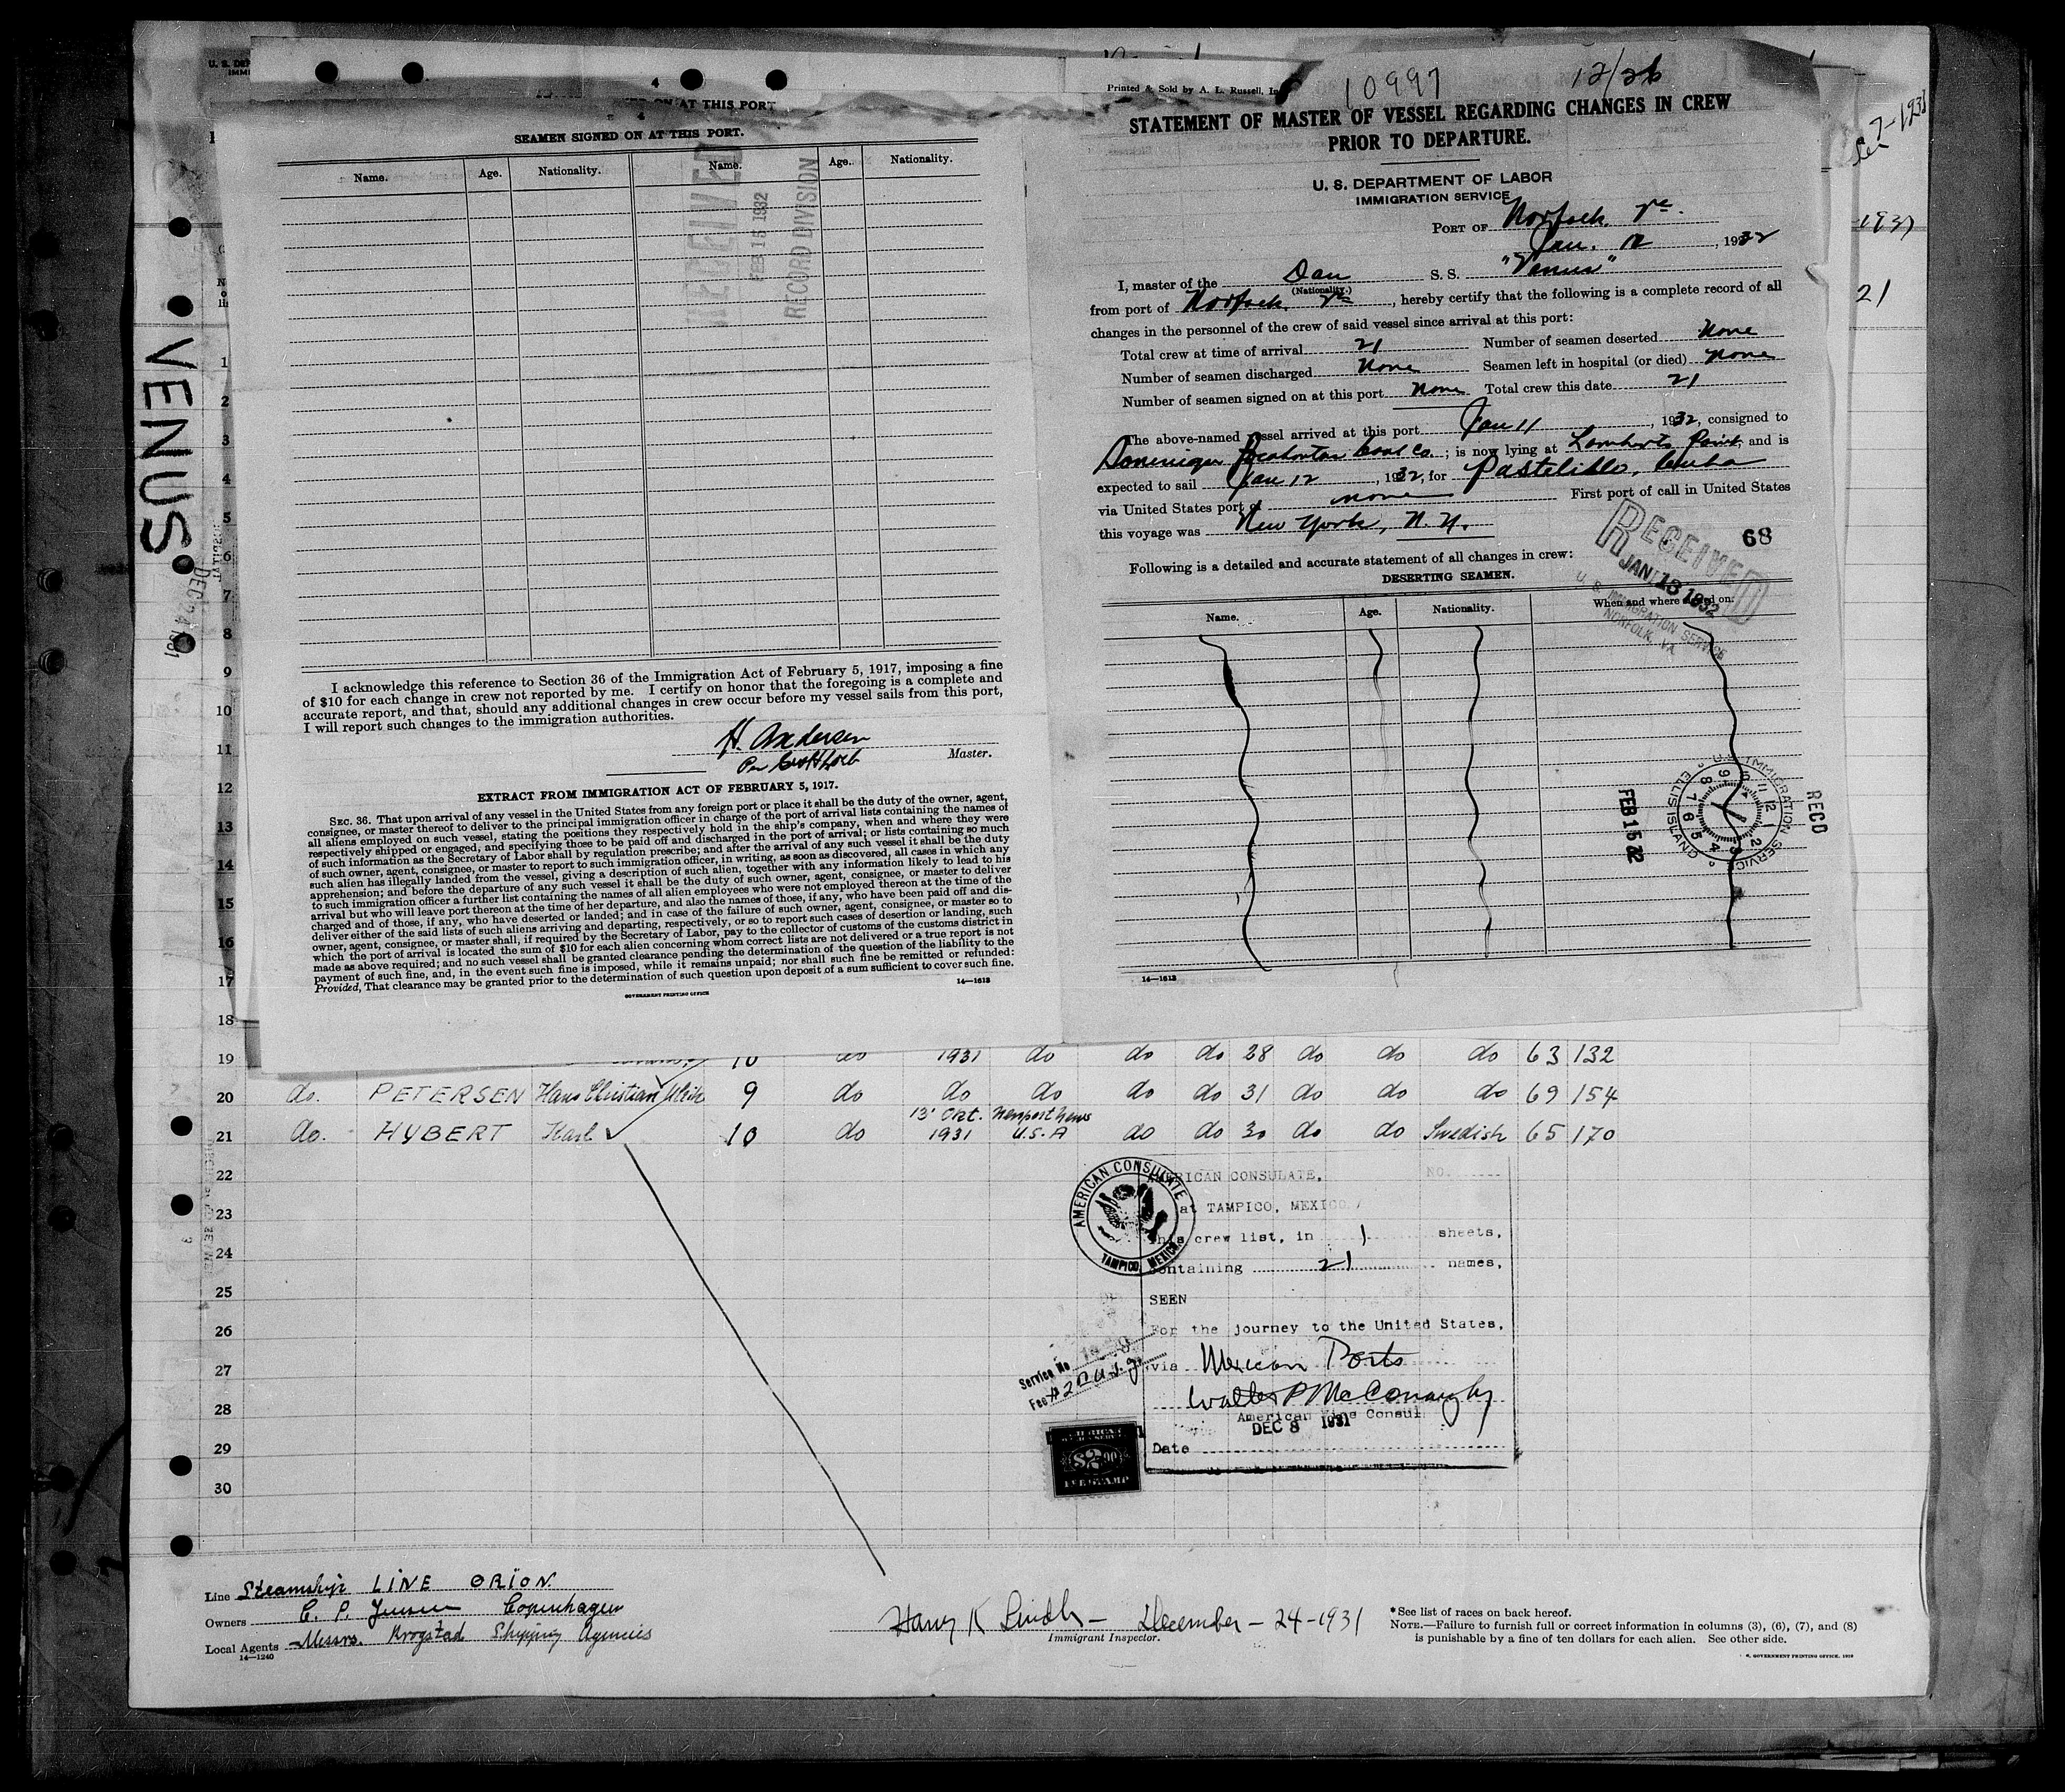 VENUS
DEC 24 1931
U. S. DEP
IMMI
4
ON AT THIS PORT
SEAMEN SIGNED ON AT THIS PORT.
Name. Age. Nationality. Name. Age. Nationality.
RECEIVED
FEB 16 1932
RECORD DIVISION
I acknowledge this reference to Section 36 of the Immigration Act of February 5, 1917, imposing a fine
of $10 for each change in crew not reported by me. I certify on honor that the foregoing is a complete and
accurate report, and that, should any additional changes in crew occur before my vessel sails from this port,
I will report such changes to the immigration authorities.
H. Andersen
Per
Master.
EXTRACT FROM IMMIGRATION ACT OF FEBRUARY 5, 1917.
SEC. 36. That upon arrival of any vessel in the United States from any foreign port or place it shall be the duty of the owner, agent,
consignee, or master thereof to deliver to the principal immigration officer in charge of the port of arrival lists containing the names of
all aliens employed on such vessel, stating the positions they respectively hold in the ship's company, when and where they were
respectively shipped or engaged, and specifying those to be paid off and discharged in the port of arrival; or lists containing so much
of such information as the Secretary of Labor shall by regulation prescribe; and after the arrival of any such vessel it shall be the duty
of such owner, agent, consignee, or master to report to such immigration officer, in writing, as soon as discovered, all cases in which any
such alien has illegally landed from the vessel, giving a description of such alien, together with any information likely to lead to his
apprehension; and before the departure of any such vessel it shall be the duty of such owner, agent, consignee, or master to deliver
to such immigration officer a further list containing the names of all alien employees who were not employed thereon at the time of the
arrival but who will leave port thereon at the time of her departure, and also the names of those, if any, who have been paid off and dis-
charged and of those, if any, who have deserted or landed; and in case of the failure of such owner, agent, consignee, or master so to
deliver either of the said lists of such aliens arriving and departing, respectively, or so to report such cases of desertion or landing, such
owner, agent, consignee, or master shall, if required by the Secretary of Labor, pay to the collector of customs of the customs district in
which the port of arrival is located the sum of $10 for each alien concerning whom correct lists are not delivered or a true report is not
made as above required; and no such vessel shall be granted clearance pending the determination of the question of the liability to the
payment of such fine, and, in the event such fine is imposed, while it remains unpaid; nor shall such fine be remitted or refunded:
Provided, That clearance may be granted prior to the determination of such question upon deposit of a sum sufficient to cover such fine.
GOVERNMENT PRINTING OFFICE
14—1613
Printed & Sold by A. L. Russell, In
10997 12/26
STATEMENT OF MASTER OF VESSEL REGARDING CHANGES IN CREW
PRIOR TO DEPARTURE.
U. S. DEPARTMENT OF LABOR
IMMIGRATION SERVICE
PORT OF Norfolk, Va.
Jan. 12, 1932
I, master of the Dan S. S. "Venus"
(Nationality.)
from port of Norfolk, Va, hereby certify that the following is a complete record of all
changes in the personnel of the crew of said vessel since arrival at this port:
Total crew at time of arrival 21 Number of seamen deserted None
Number of seamen discharged None Seamen left in hospital (or died) None
Number of seamen signed on at this port None Total crew this date 21
The above-named vessel arrived at this port Jan 11, 1932, consigned to
Pocahontas Coal Co.; is now lying at Lamberts Point, and is
expected to sail Jan 12, 1932, for Pastelillo, Cuba
via United States port of none First port of call in United States
this voyage was New York, N. Y.
68
Following is a detailed and accurate statement of all changes in crew:
DESERTING SEAMEN.
RECEIVED
JAN 13 1932
U. S. IMMIGRATION SERVICE
NORFOLK, VA.
Name. Age. Nationality. When and where signed on.
RECD
U.S. IMMIGRATION SERVICE
ELLIS ISLAND
FEB 15 32
14—1613
-1931
21
1
2
3
4
5
6
7
8
9
10
11
12
13
14
15
16
17
18
19 10 do 1931 do do do 28 do do do 63 132
20 do. PETERSEN Hans Christian 9 do do do do do 31 do do do 69 154
21 do. HYBERT Karl 10 do 13' Okt. 1931 Newport News U.S.A do do 30 do do Swedish 65 170
22
23
24
25
26
27
28
29
30
AMERICAN CONSULATE
TAMPICO, MEXICO.
AMERICAN CONSULATE, NO.
at TAMPICO, MEXICO.
This crew list, in 1 sheets,
containing 21 names,
SEEN
For the journey to the United States,
via Mexican Ports
Walter P McConaughy
American Vice Consul
DEC 8 1931
Date
Service No
Fee #2
$2.00
FEE STAMP
Line Steamship LINE ORION.
Owners C. P. Jensen Copenhagen
Local Agents Messrs. Krogstad Shipping Agencies
14—1240
Harry K Lindh — December — 24 - 1931
Immigrant Inspector.
*See list of races on back hereof.
NOTE.—Failure to furnish full or correct information in columns (3), (6), (7), and (8)
is punishable by a fine of ten dollars for each alien. See other side.
GOVERNMENT PRINTING OFFICE. 1929